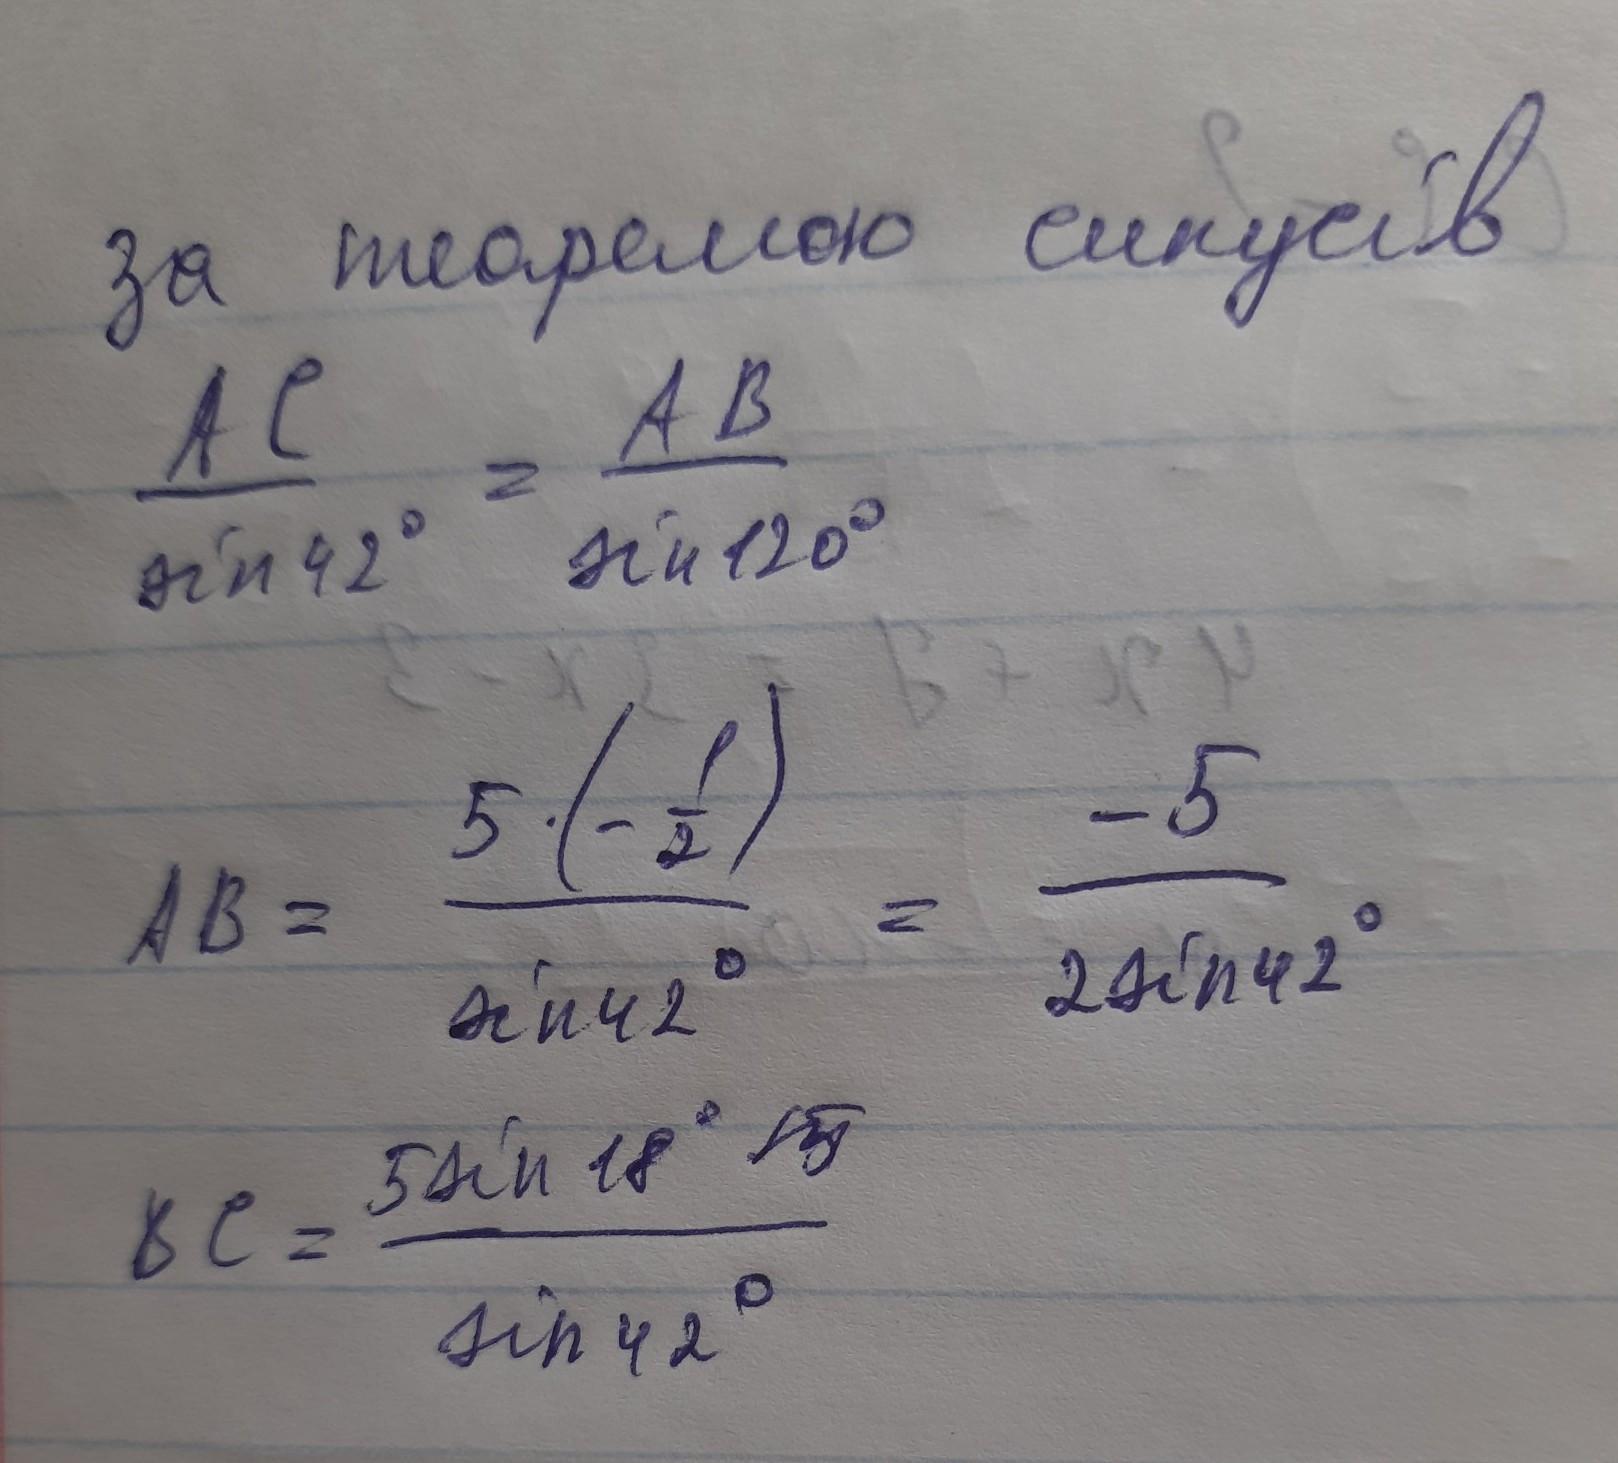 за теоремою синусів
AC/sin42° = AB/sin120°
AB = 5·(-1/2)/sin42° = -5/2sin42°
BC = 5sin18°/sin42°